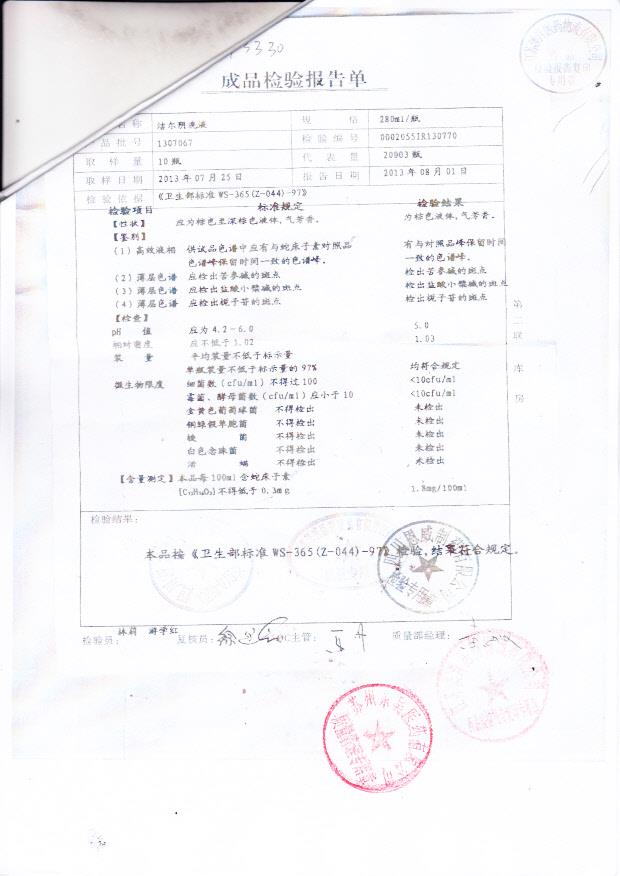 5330
成品检验报告单
名称 洁尔阴洗液 规格 280ml/瓶
产品批号 1307067 检验编号 0002055IR130770
取样量 10瓶 代表量 20903瓶
取样日期 2013年07月25日 报告日期 2013年08月01日
检验依据 《卫生部标准WS-365(Z-044)-97》
检验项目 标准规定 检验结果
【性状】 应为棕色至深棕色液体,气芳香。 为棕色液体,气芳香。
【鉴别】
(1)高效液相 供试品色谱中应有与蛇床子素对照品 有与对照品峰保留时间
色谱峰保留时间一致的色谱峰。 一致的色谱峰。
(2)薄层色谱 应检出苦参碱的斑点 检出苦参碱的斑点
(3)薄层色谱 应检出盐酸小檗碱的斑点 检出盐酸小檗碱的斑点
(4)薄层色谱 应检出栀子苷的斑点 检出栀子苷的斑点
【检查】
pH 值 应为4.2-6.0 5.0
相对密度 应不低于1.02 1.03
装量 平均装量不低于标示量
单瓶装量不低于标示量的97% 均符合规定
微生物限度 细菌数(cfu/ml)不得过100 <10cfu/ml
霉菌、酵母菌数(cfu/ml)应小于10 <10cfu/ml
金黄色葡萄球菌 不得检出 未检出
铜绿假单胞菌 不得检出 未检出
梭菌 不得检出 未检出
白色念珠菌 不得检出 未检出
活螨 不得检出 未检出
【含量测定】本品每100ml含蛇床子素
(C₁₅H₁₆O₃)不得低于0.3mg 1.8mg/100ml
第二联 库房
检验结果:
本品按《卫生部标准WS-365(Z-044)-97》检验,结果符合规定。
四川恩威制药有限公司
检验专用章
检验员: 林莉 游学红 复核员: QC主管: 质量部经理: